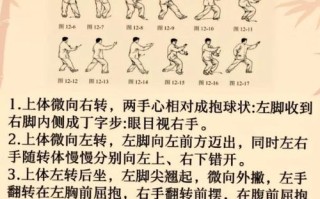 图12-6 图12-7 图12-8 图12-9 图12-10 图12-11
图12-12 图12-13 图12-14 图12-15 图12-16 图12-17
1.上体微向右转，两手心相对成抱球状:左脚收到
右脚内侧成丁字步:眼目视右手。
2.上体微向左转，左脚向左前方迈出，同时左右
手随转体慢慢分别向左上、右下错开。
3.上体左转后坐，左脚尖翘起，微向外撇，左手
翻转在左胸前屈抱，右手翻转前摆，在腹前屈抱